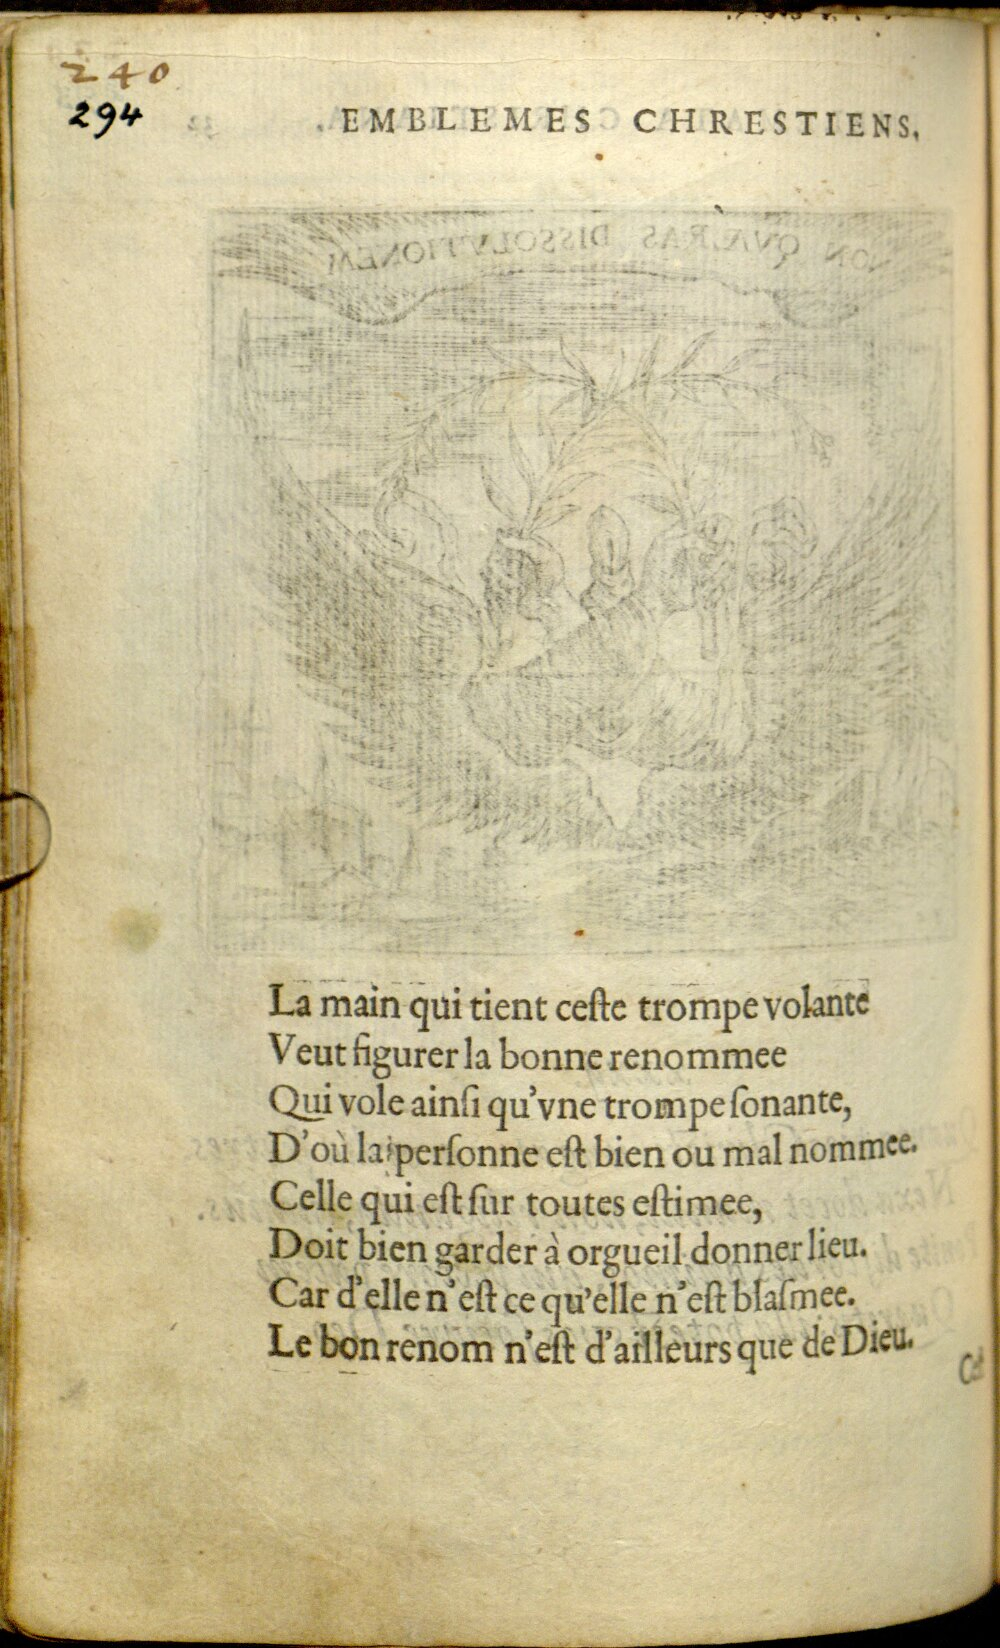 240
294
EMBLEMES CHRESTIENS.
NON QVÆRAS DISSOLVTIONEM
La main qui tient ceſte trompe volante
Veut figurer la bonne renommee
Qui vole ainſi qu'vne trompe ſonante,
D'où la perſonne eſt bien ou mal nommee.
Celle qui eſt ſur toutes eſtimee,
Doit bien garder à orgueil donner lieu.
Car d'elle n'eſt ce qu'elle n'eſt blaſmee.
Le bon renom n'eſt d'ailleurs que de Dieu.